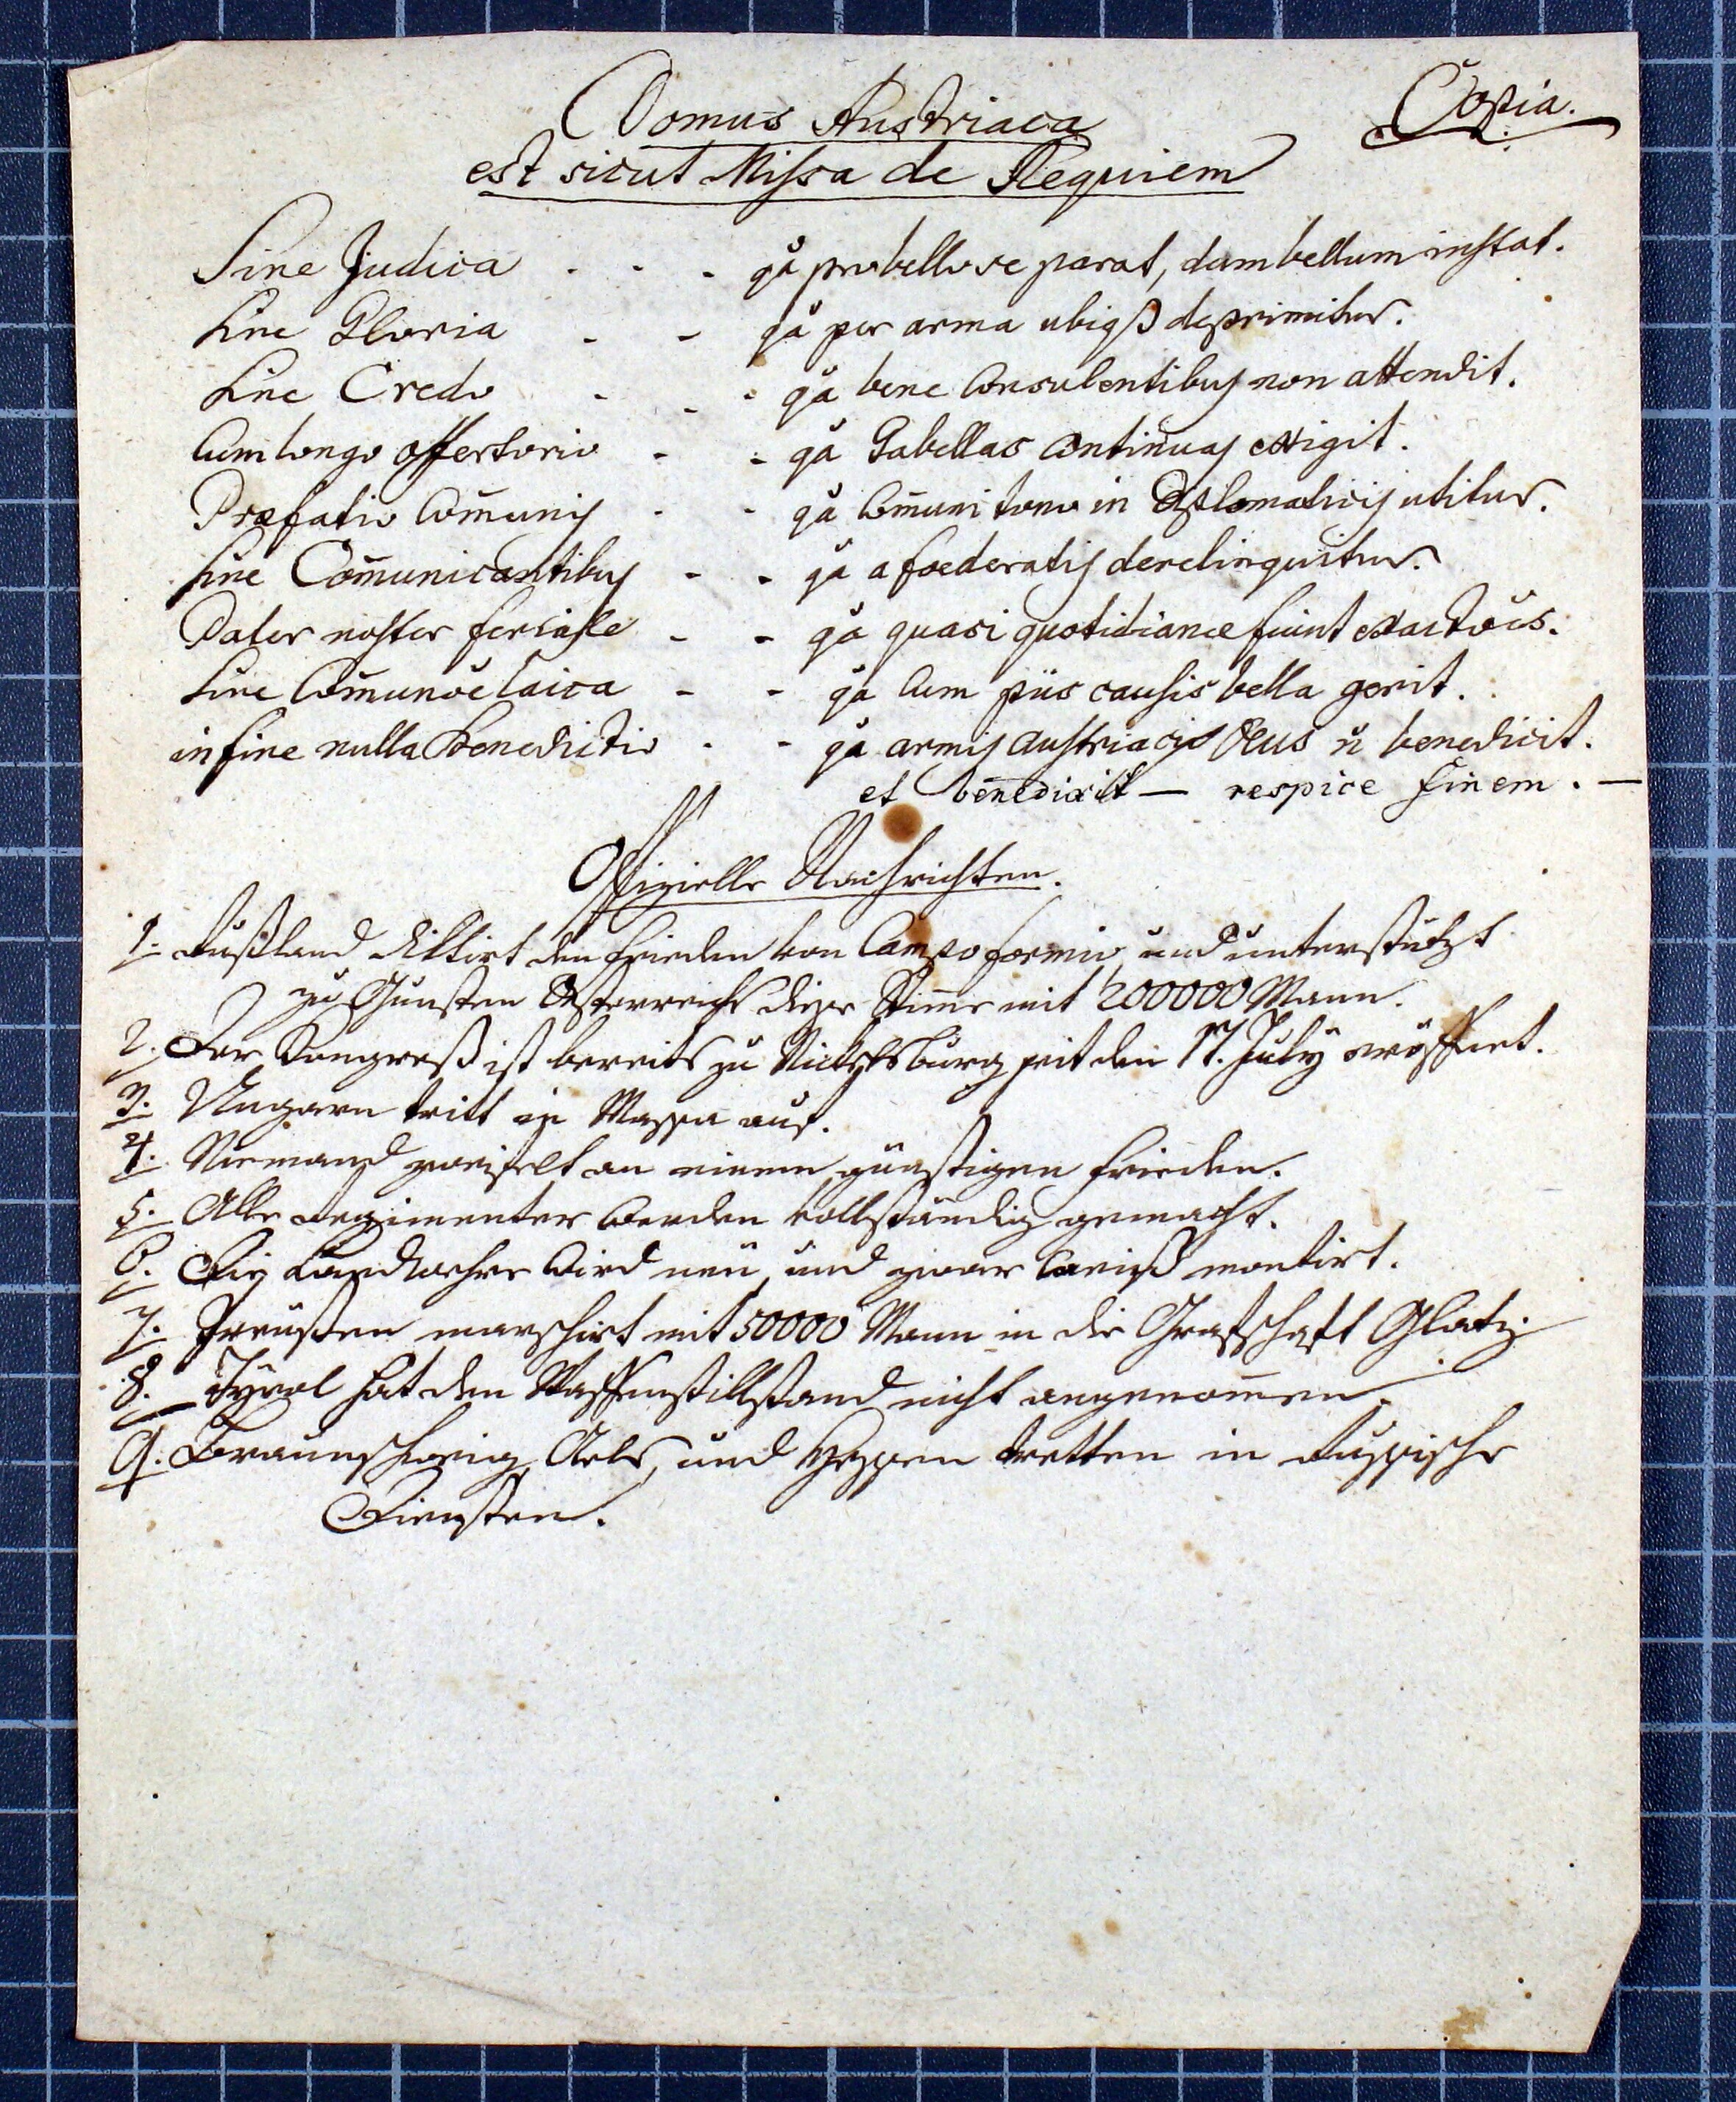 Copia.
Domus Austriaca
est sicut Missa de Requiem
Sine Judica - - - qã pro bello se parat, dum bellum instat.
Sine Gloria - - qã per arma ubiqꝫ deprimitur.
Sine Credo - - - qã bene Consulentibus non attendit.
Cum longo offertorio - - qã Gabellas Continuas exigit.
Præfatio Com̄unis - - qã Com̄uni tono in Diplomaticis utitur.
Sine Com̄unicantibus - - qã a foederatis derelinquitur.
Pater noster feriale - - qã quasi quotidianæ fiunt exactões.
Sine Com̄unõe laica - - qã Cum piis causis bella gerit.
in fine nulla benedictio - - qã armis Austriacis Deus ñ benedicit.
et benedixit — respice finem. —
Offizielle Nachrichten.
1. Rußland diktirt den Frieden von Campo formio, und unterstützt
zu Gunsten Österreichs diese Stim̄e mit 200000 Mann.
2. Der Kongreß ist bereits zu Nickolsburg seit den 17. July eröffnet.
3. Ungarn tritt in Massa auf.
4. Niemand zweifelt an einem günstigen Frieden.
5. Alle Regimenter werden vollständig gemacht.
6. Die Landwehre wird neu, und zwar weiß montirt.
7. Preußen marschirt mit 50000 Mann in die Grafschaft Glatz.
8. Tyrol hat den Waffenstillstand nicht angenom̄en.
9. Braunschweig Oels, und Hessen tretten in Russische
Diensten.